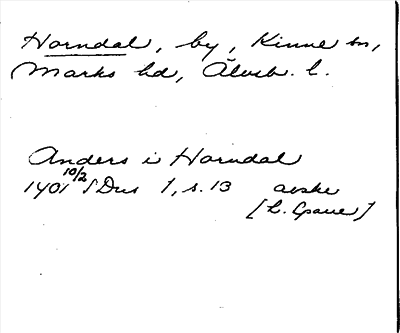 Horndal, by, Kinne sn,
Marks hd, Älvsb. l.
Anders i Horndal
1401 10/2 SDns 1, s. 13 avskr
[L. Gran]